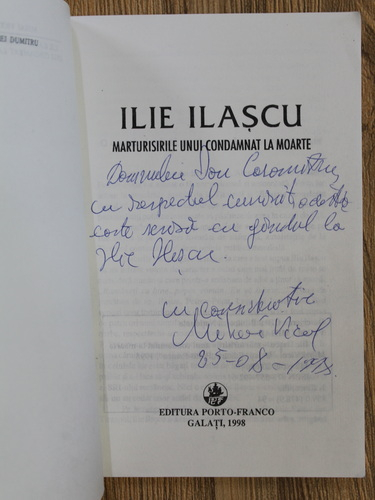 DUMITRU
ILIE ILAȘCU
MARTURISIRILE UNUI CONDAMNAT LA MOARTE
Domnului Ion
cu respectul cuvenit,
carte scrisă cu gândul la
Ilie Ilașcu.
cu consideratie
Mihai
25-08-1998
EDITURA PORTO-FRANCO
GALAȚI, 1998